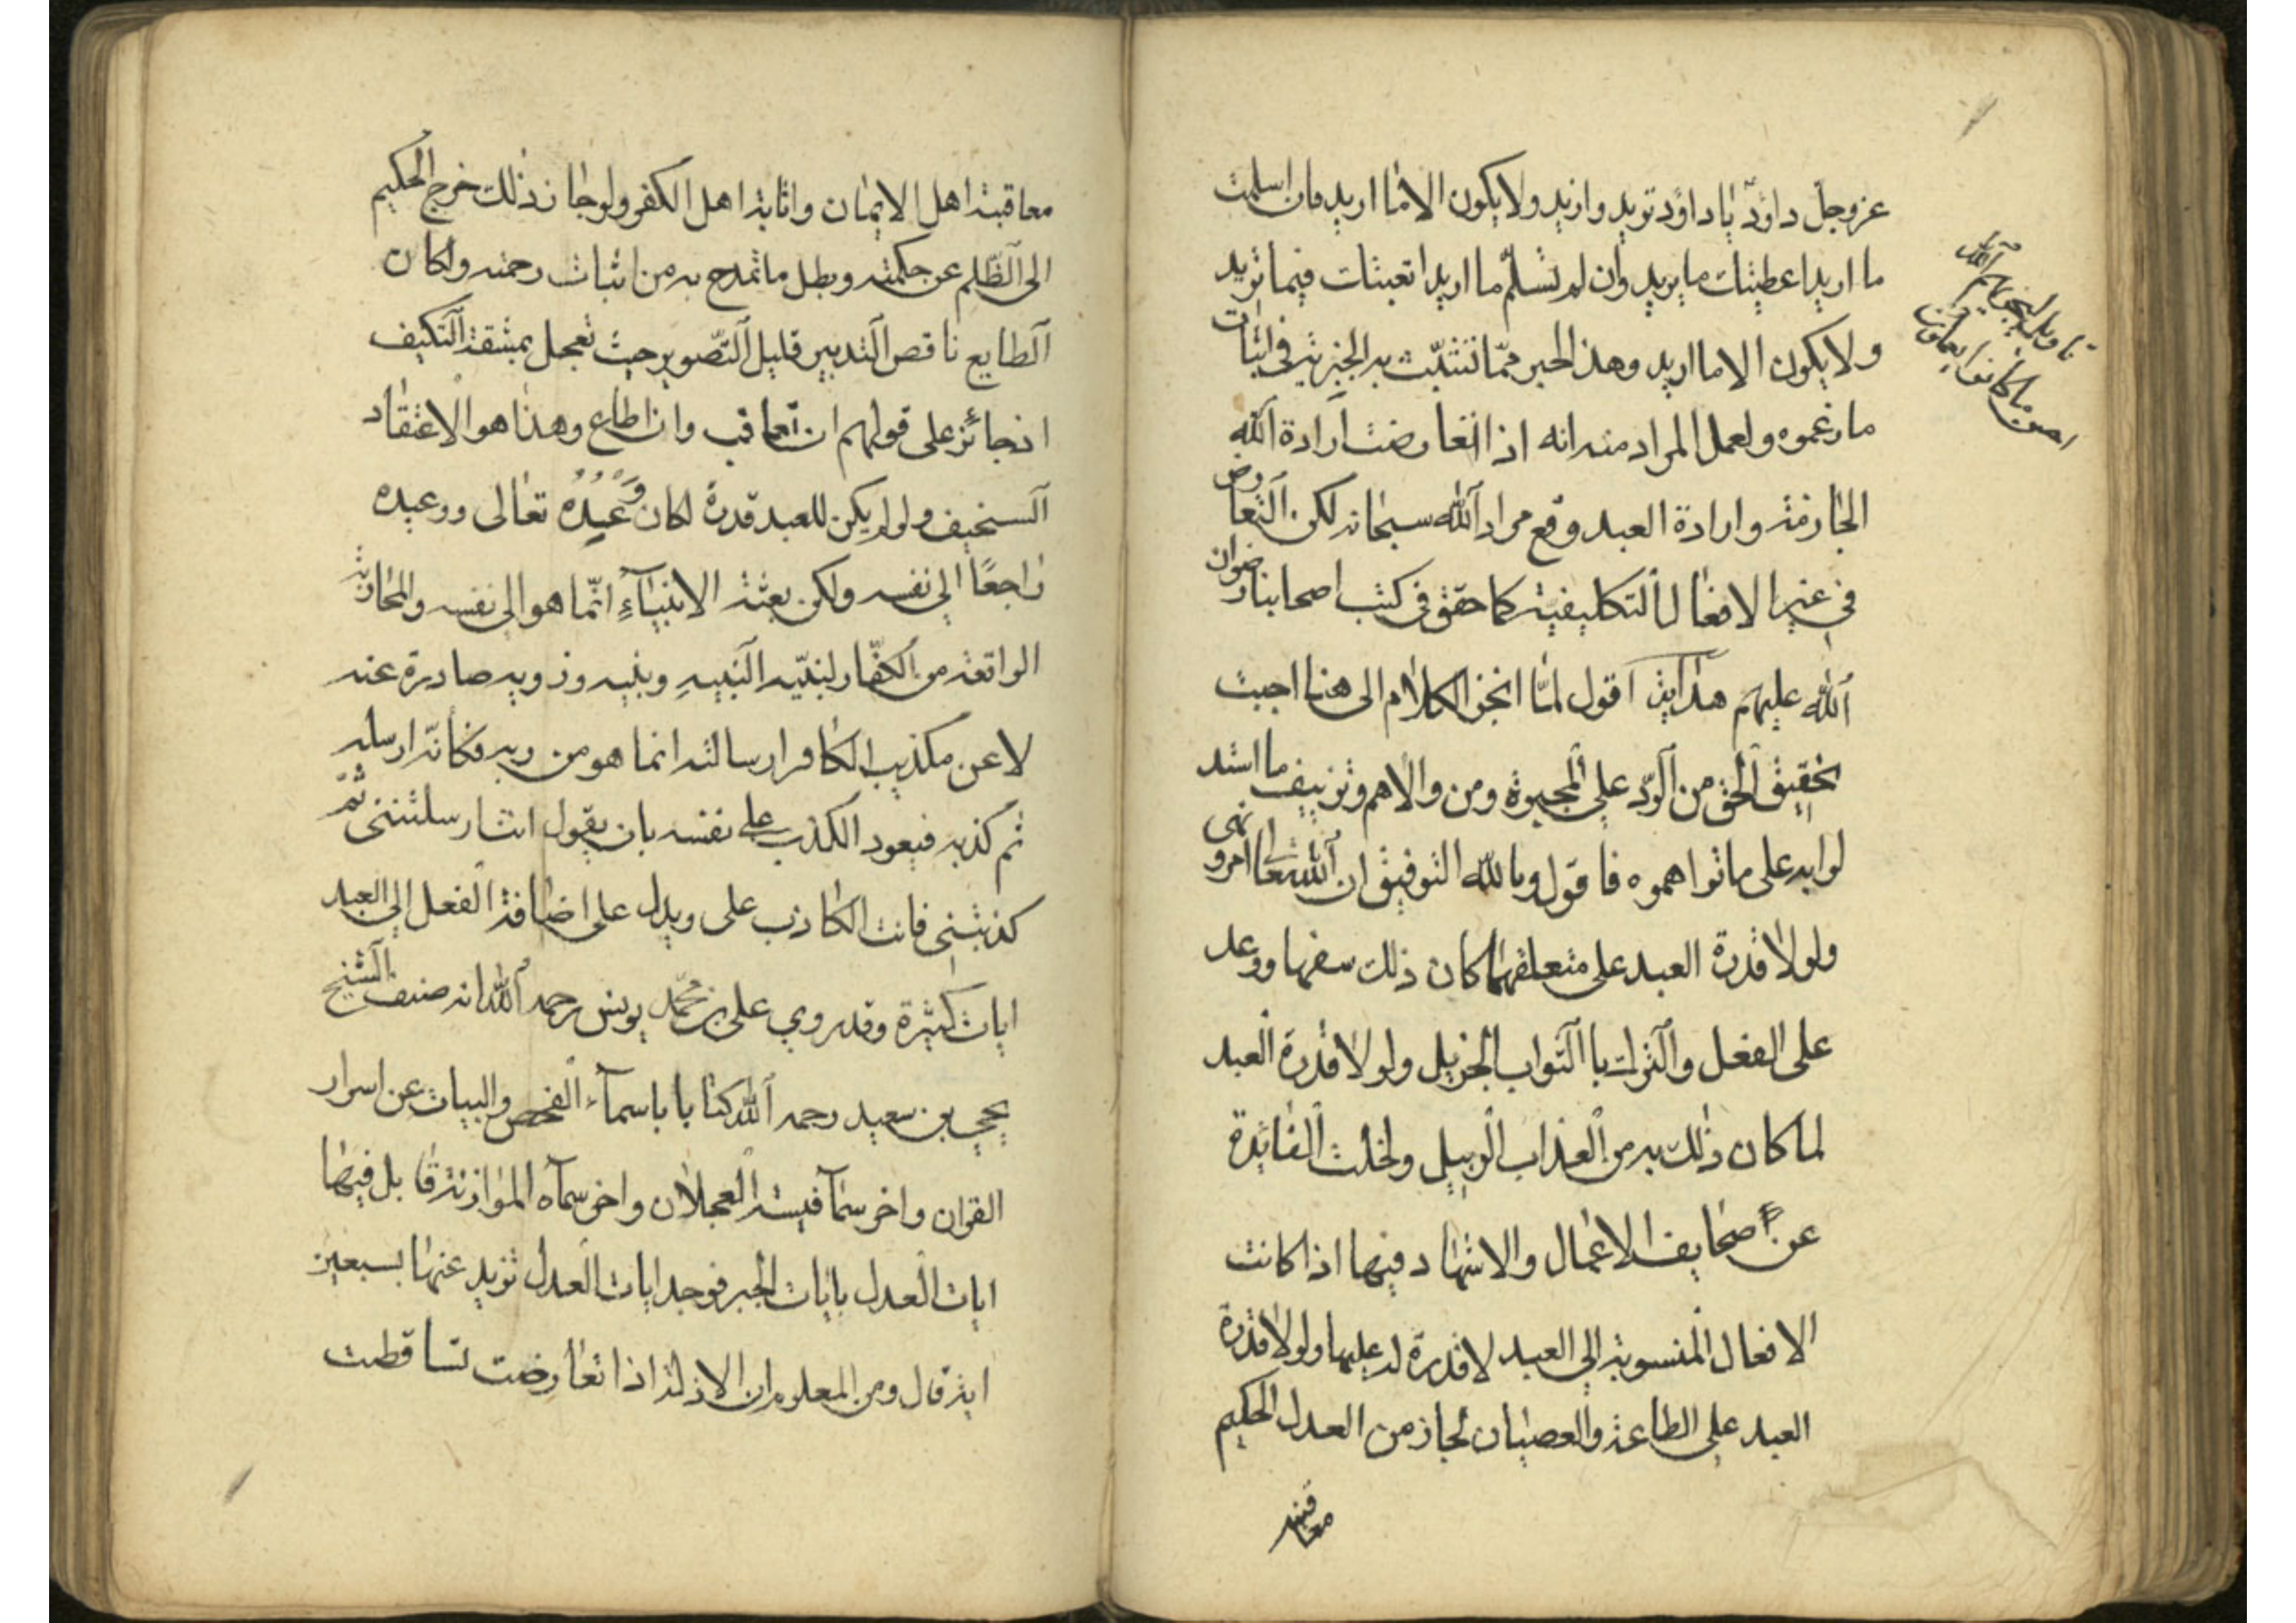 عزوجل داود يا داود تريد واريد ولا يكون الا ما اريد فان اسلمت
ما اريد اعطيتك ما تريد وان لم تسلم ما اريد اتعبتك فيما تريد
ولا يكون الا ما اريد وهذا الخبر مما تتشبث به الجبرية في اثبات
ما زعموه ولعمل المراد منه انه اذا اتعارضت ارادة الله
الجازمة وارادة العبد وقع مراد الله سبحانه لكن التعارض
في غير الافعال التكليفية كما حقق في كتب اصحابنا رضوان
الله عليهم هداية اقول لما انجر الكلام الى هنا احببت
تحقيق الحق من الرد على المجبرة ومن والاهم وتزييف ما استد
لوا به على ما توا هموه فاقول وبالله التوفيق ان الله تعالى امر ونهى
ولولا قدرة العبد على متعلقهما كان ذلك سفها ووعد
على الفعل والترك با الثواب الجزيل ولولا قدرة العبد
لما كان ذلك به من العذاب الوبيل ولخلت الفايدة
عن صحايف الاعمال والاشهاد فيها اذا كانت
الافعال المنسوبة الى العبد لا قدرة له عليها ولولا قدرة
العبد على الطاعة والعصيان لجاز من العدل الحكيم
معاقبة
معاقبة اهل الايمان واثابة اهل الكفر ولو جاز ذلك خرج الحكيم
الى الظلم عن حكمته وبطل ما تمدح به من اثبات رحمته ولكان
الطايع ناقص التدبير قليل التصوير حيث تعجل بمشقة التكيف
اذ جائز على قولهم ان تعاقب وان اطاع وهذا هو الاعتقاد
السخيف ولو لم يكن للعبد قدرة لكان وعيده تعالى ووعيده
راجعا الى نفسه ولكن بعثة الانبياء انما هو الى نفسه والمحاربة
الواقعة من الكفار لنبيه النبيه وبنيه وذويه صادرة عنه
لا عن مكذيب الكافر ارسالته انما هو من ربه فكانه ارسله
ثم كذبه فيعود الكذب على نفسه بان يقول انت ارسلتنى ثم
كذبتنى فانت الكاذب على ويدل على اضافة الفعل الى العبد
ايات كثيرة وقد روي على بن محمد يونس رحمه الله انه صنف الشيخ
يحيى بن سعيد رحمه الله كتابا باسماء الفحص والبيات عن اسرار
القران واخر سما فيسة العجلان واخر سماه الموازنة قابل فيها
ايات العدل بايات الجبر فوجد ايات العدل تزيد عنها بسبعين
اية قال ومن المعلوم ان الادلة اذا تعارضت تساقطت